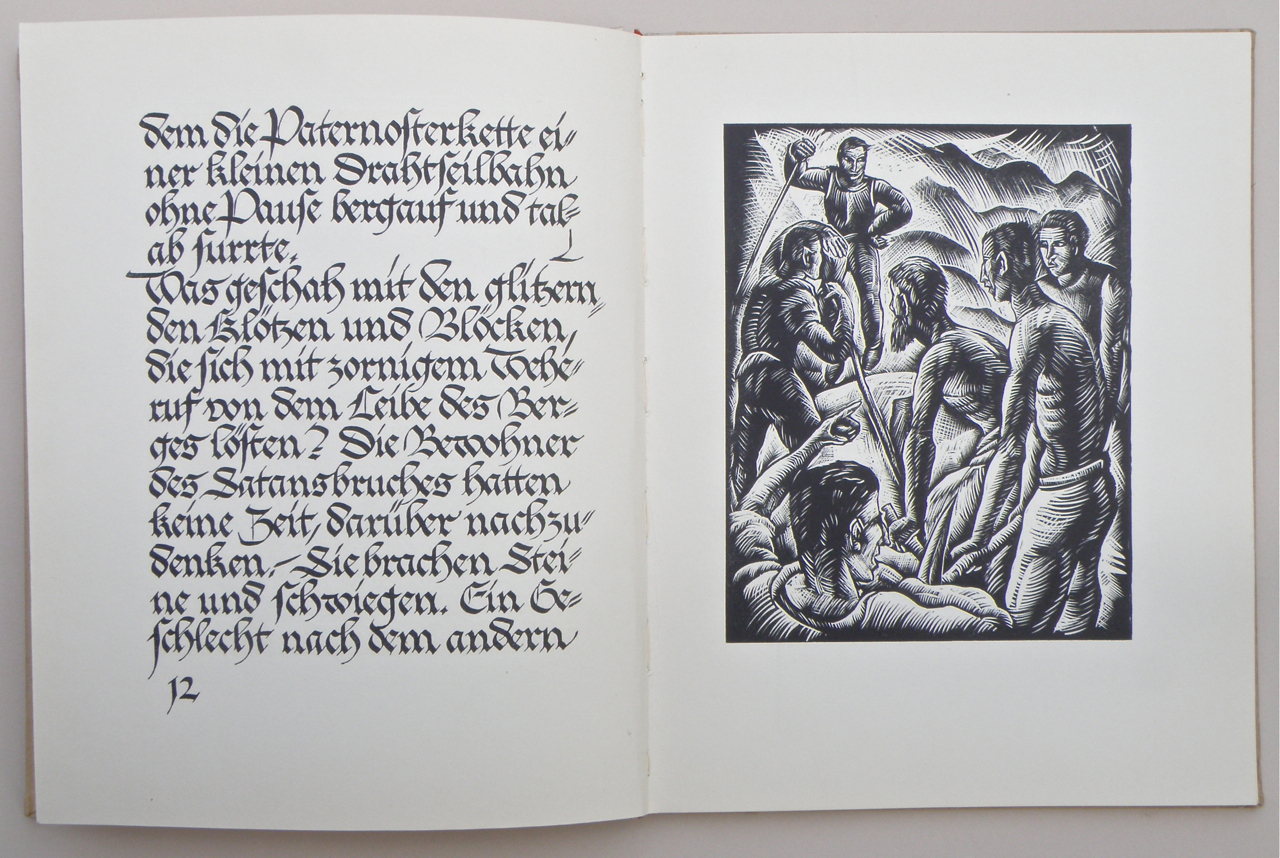 dem die Paternosterkette ei=
ner kleinen Drahtseilbahn
ohne Pause bergauf und tal=
ab surrte.
Was geschah mit den glitzern=
den Klötzen und Blöcken,
die sich mit zornigem Wehe=
ruf von dem Leibe des Ber=
ges lösten? Die Bewohner
des Satansbruches hatten
keine Zeit, darüber nachzu=
denken. – Sie brachen Stei=
ne und schwiegen. Ein Ge=
schlecht nach dem andern
12